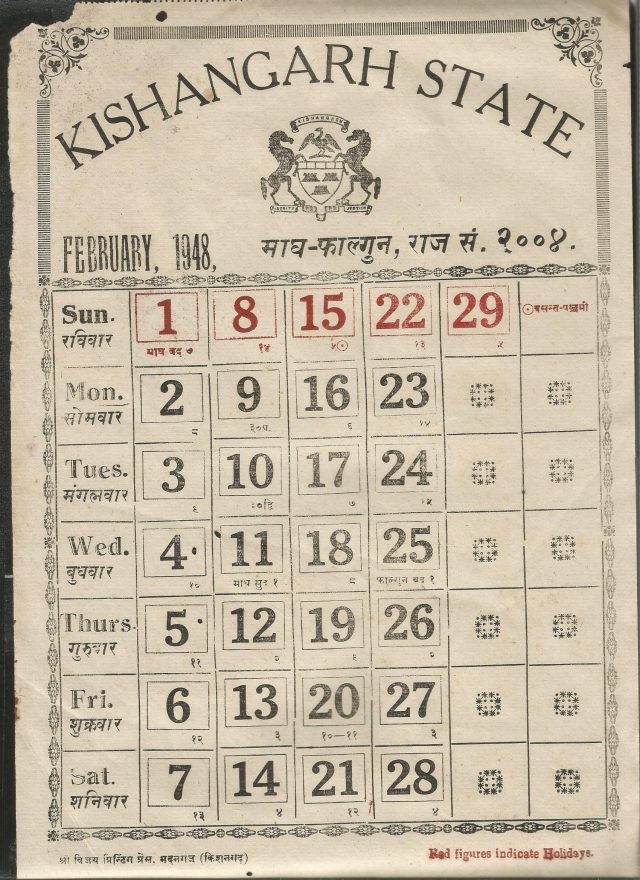 KISHANGARH STATE
KISHANGARH
FEBRUARY, 1948, माघ-फाल्गुन, राज सं. २००४.
Sun. 1 8 15 22 29 बसन्त-पञ्चमी
रविवार माघ बद ७ १४ ५ १३ ५
Mon. 2 9 16 23
सोमवार ८ ३०प. ६ १४
Tues. 3 10 17 24
मंगलवार ९ ३०द्वि ७ १५
Wed. 4 11 18 25
बुधवार १० माघ सुद १ ८ फाल्गुन बद १
Thurs. 5 12 19 26
गुरुवार ११ २ ९ २
Fri. 6 13 20 27
शुक्रवार १२ ३ १०—११ ३
Sat. 7 14 21 28
शनिवार १३ ४ १२ ४
श्री विजय प्रिन्टिंग प्रेस, मदनगंज (किशनगढ़) Red figures indicate Holidays.